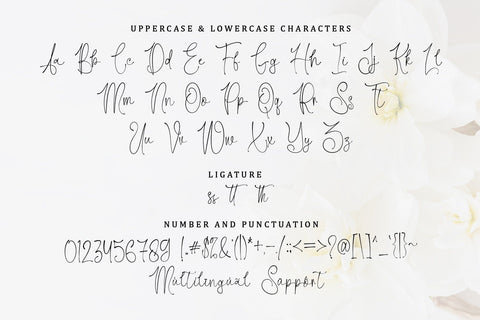 UPPERCASE & LOWERCASE CHARACTERS
Aa Bb Cc Dd Ee Ff Gg Hh Ii Jj Kk Ll
Mm Nn Oo Pp Qq Rr Ss Tt
Uu Vv Ww Xx Yy Zz
LIGATURE
ss tt th
NUMBER AND PUNCTUATION
0123456789 !.#$%&'()*+,-/:;<=>?@[\]^_`{|}~
Multilingual Sapport